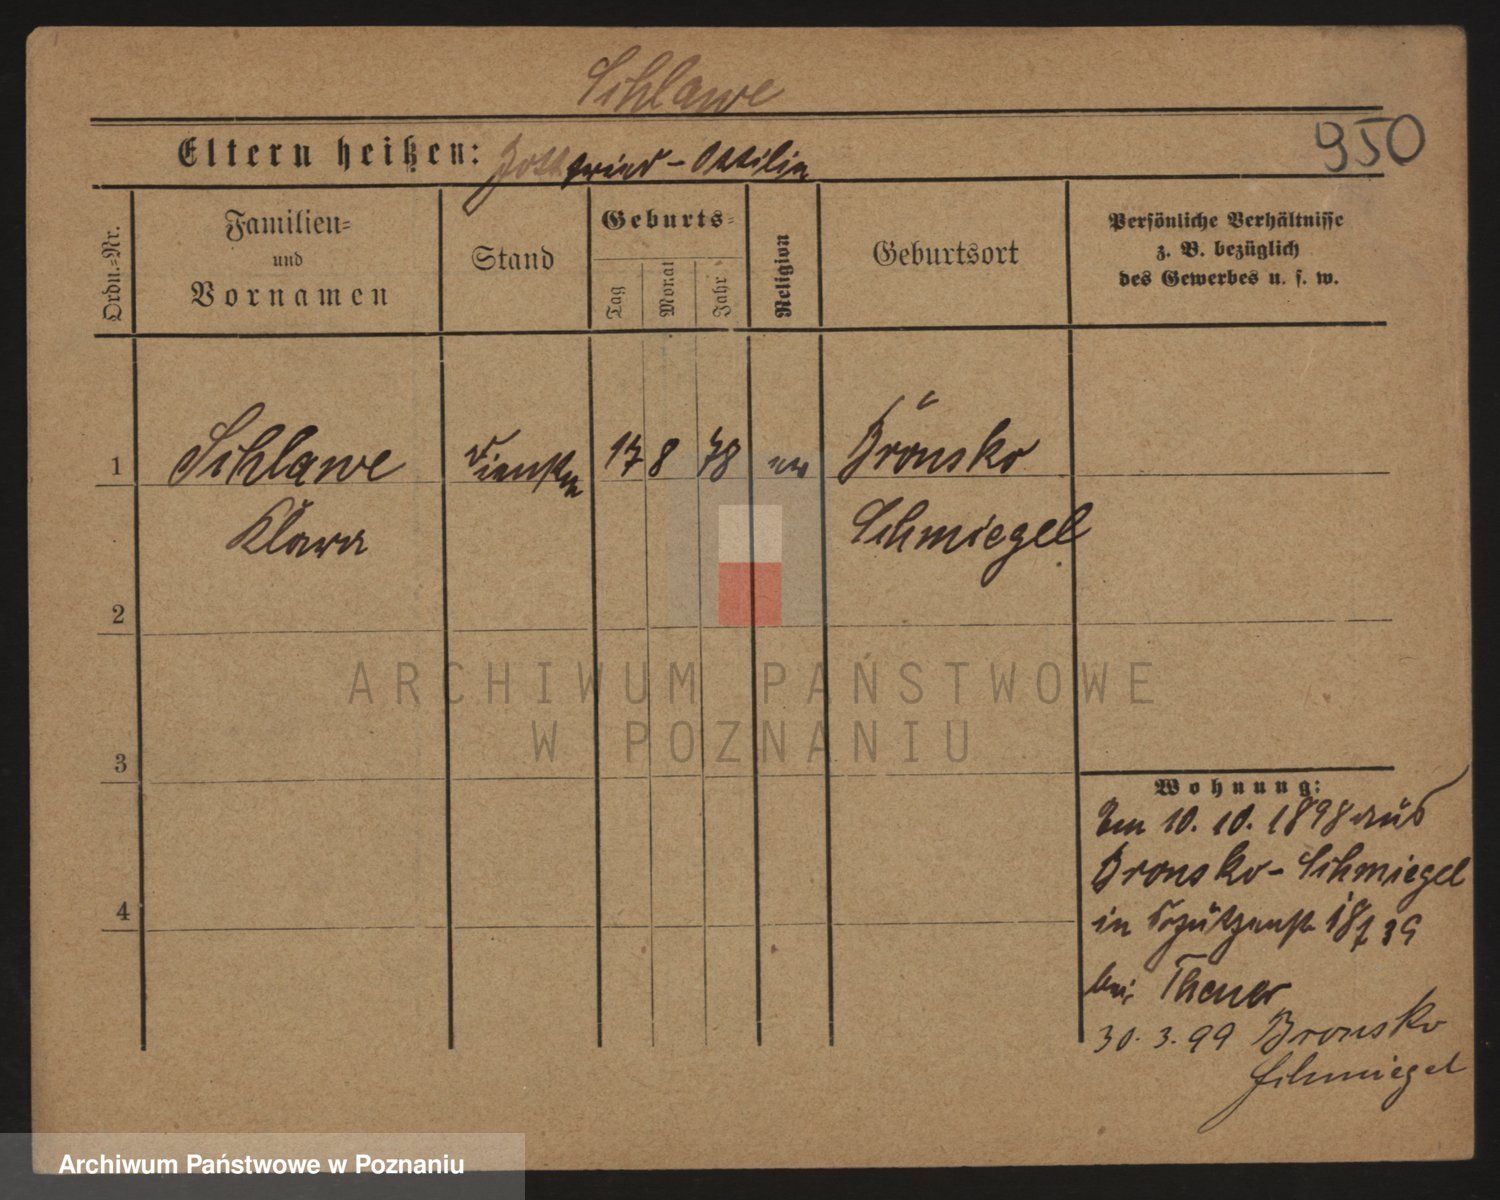 Schlawe
Eltern heißen: Gottfried - Ottilie
950
Ordn.-Nr.
Familien-
und
Vornamen
Stand
Geburts-
Tag
Monat
Jahr
Religion
Geburtsort
Persönliche Verhältnisse
z. B. bezüglich
des Gewerbes u. s. w.
1
Schlawe
17 8 78 ev
Bronsko
Klara
Schmiegel
2
ARCHIWUM PAŃSTWOWE
W POZNANIU
3
Wohnung:
10. 10. 1898 aus
Bronsko - Schmiegel
4
in Schützenst 18/19
bei Theuer
30. 3. 99 Bronsko
Schmiegel
Archiwum Państwowe w Poznaniu